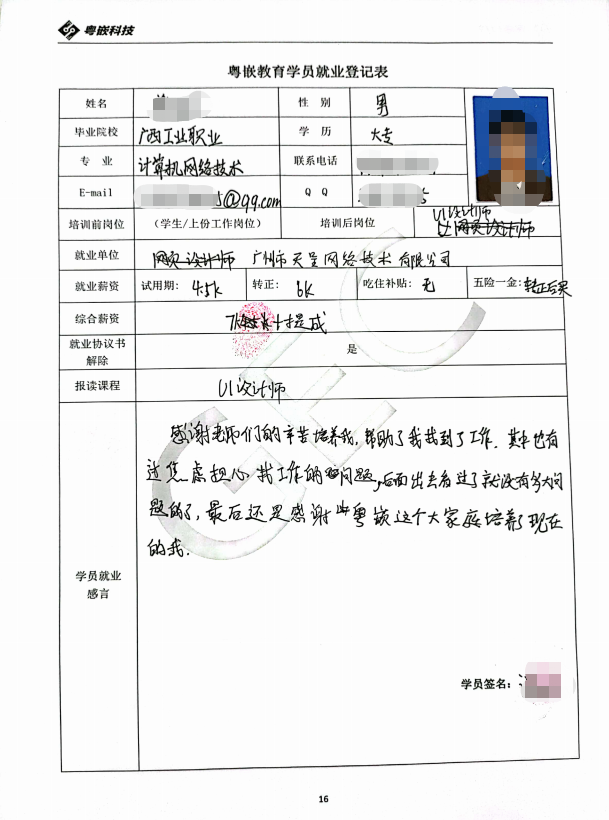 粤嵌科技
粤嵌教育学员就业登记表
姓名 性 别 男
毕业院校 广西工业职业 学 历 大专
专 业 计算机网络技术 联系电话
E-mail @qq.com Q Q
培训前岗位 (学生/上份工作岗位) 培训后岗位 UI设计师
就业单位 广州市天呈网络技术有限公司
就业薪资 试用期: 4.5k 转正: 6k 吃住补贴: 无 五险一金: 转正后买
综合薪资 +提成
就业协议书
解除 是
报读课程 UI设计师
感谢老师们的辛苦培养我,帮助了我找到了工作.其中也有
过焦虑担心找工作的问题,后面出去面过了就没有多大问
题的了,最后还是感谢粤嵌这个大家庭培养了现在
的我.
学员就业
感言
学员签名:
GEC
16